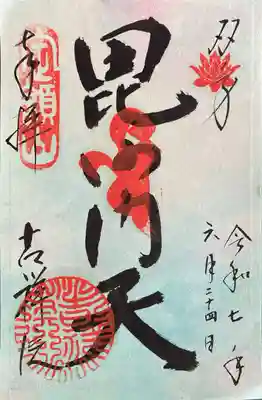 双身
令和七年
六月二十四日
毘沙門天
奉拝
吉祥院